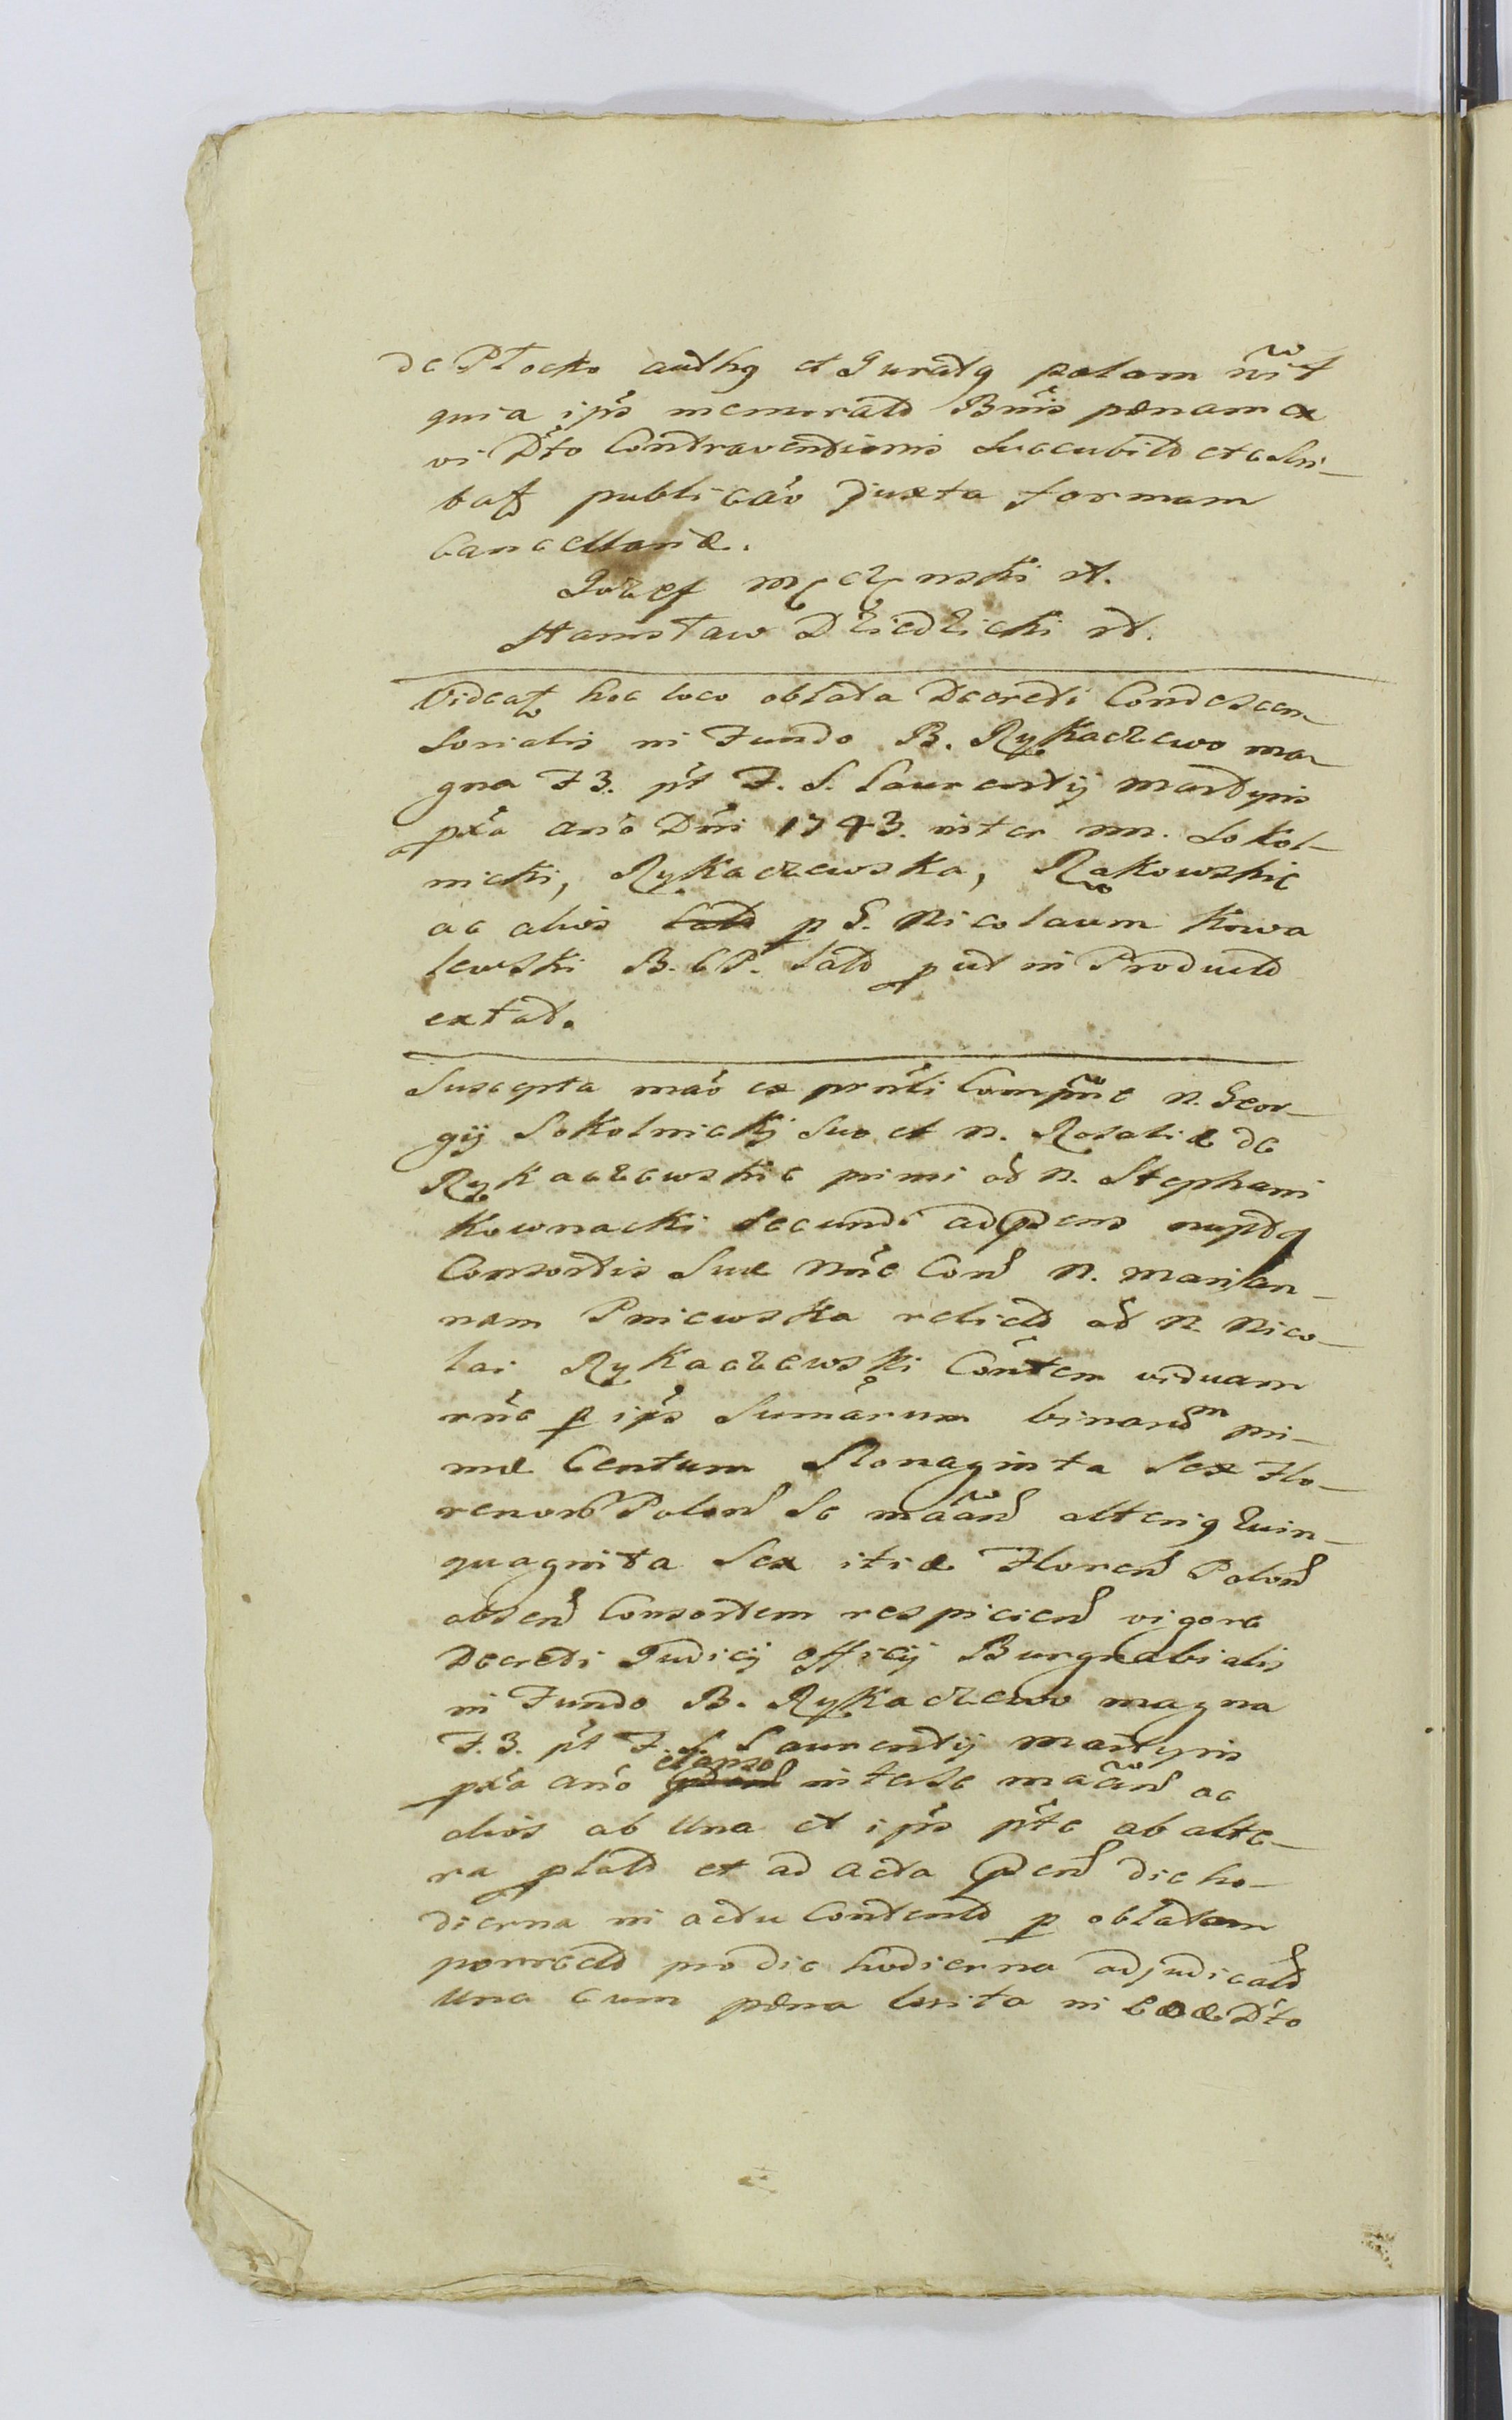 de Płocko auth9 et Jurat9 palam
quia ipso memorato Bnis penam ex
vi Dto Contraventionis Succubit et a Scri-
bat publicao juxta formam
Cancellariæ.
Jozef Męczenski
Stanisław Dziedzicki
Videat hoc loco oblata Decreti Condescen
sorialis in Fundo B. Rykaczewo ma-
gna F 3. pt F. S. Laurentij Martyris
pxa ano Dni 1743. inter nn. Sokol-
nicki, Rykaczewska, Rakowskie
ac alios lato p G. Nicolaum Kowa
lewski B. C P. lato put in Producto
extat.
Suscepta mao ex prnti Compne n. Geor-
gij Sokolnickj suo et n. Rosaliæ de
Rykaczewskie primi od n. Stephani
Kownacki secundi ad psens nupt9
Consortis suæ nne Con n. Marian-
nam Pniewska relicto od n. Nico-
lai Rykaczewski Contem viduam
rne p ips Sumarum binarum pri-
mæ Centum Nonaginta Sex Flo-
renor Polon se maan alteri9 Quin-
quaginta Sex itidæ Floren Polon
absen Consortem respicien vigore
Decreti Judicij officij Burgrabialis
in Fundo B. Rykaczewo magna
F. 3. pt F. S. Laurentij Martyris
pxa ano elapso inter se maan ac
alios ab Una et ipso pte ab alte-
ra plato et ad acta psen die ho-
dierna in actu Contento p oblatam
porrecto pro die hodierna adjudicato
Una cum pæna luita in eoæ Dto